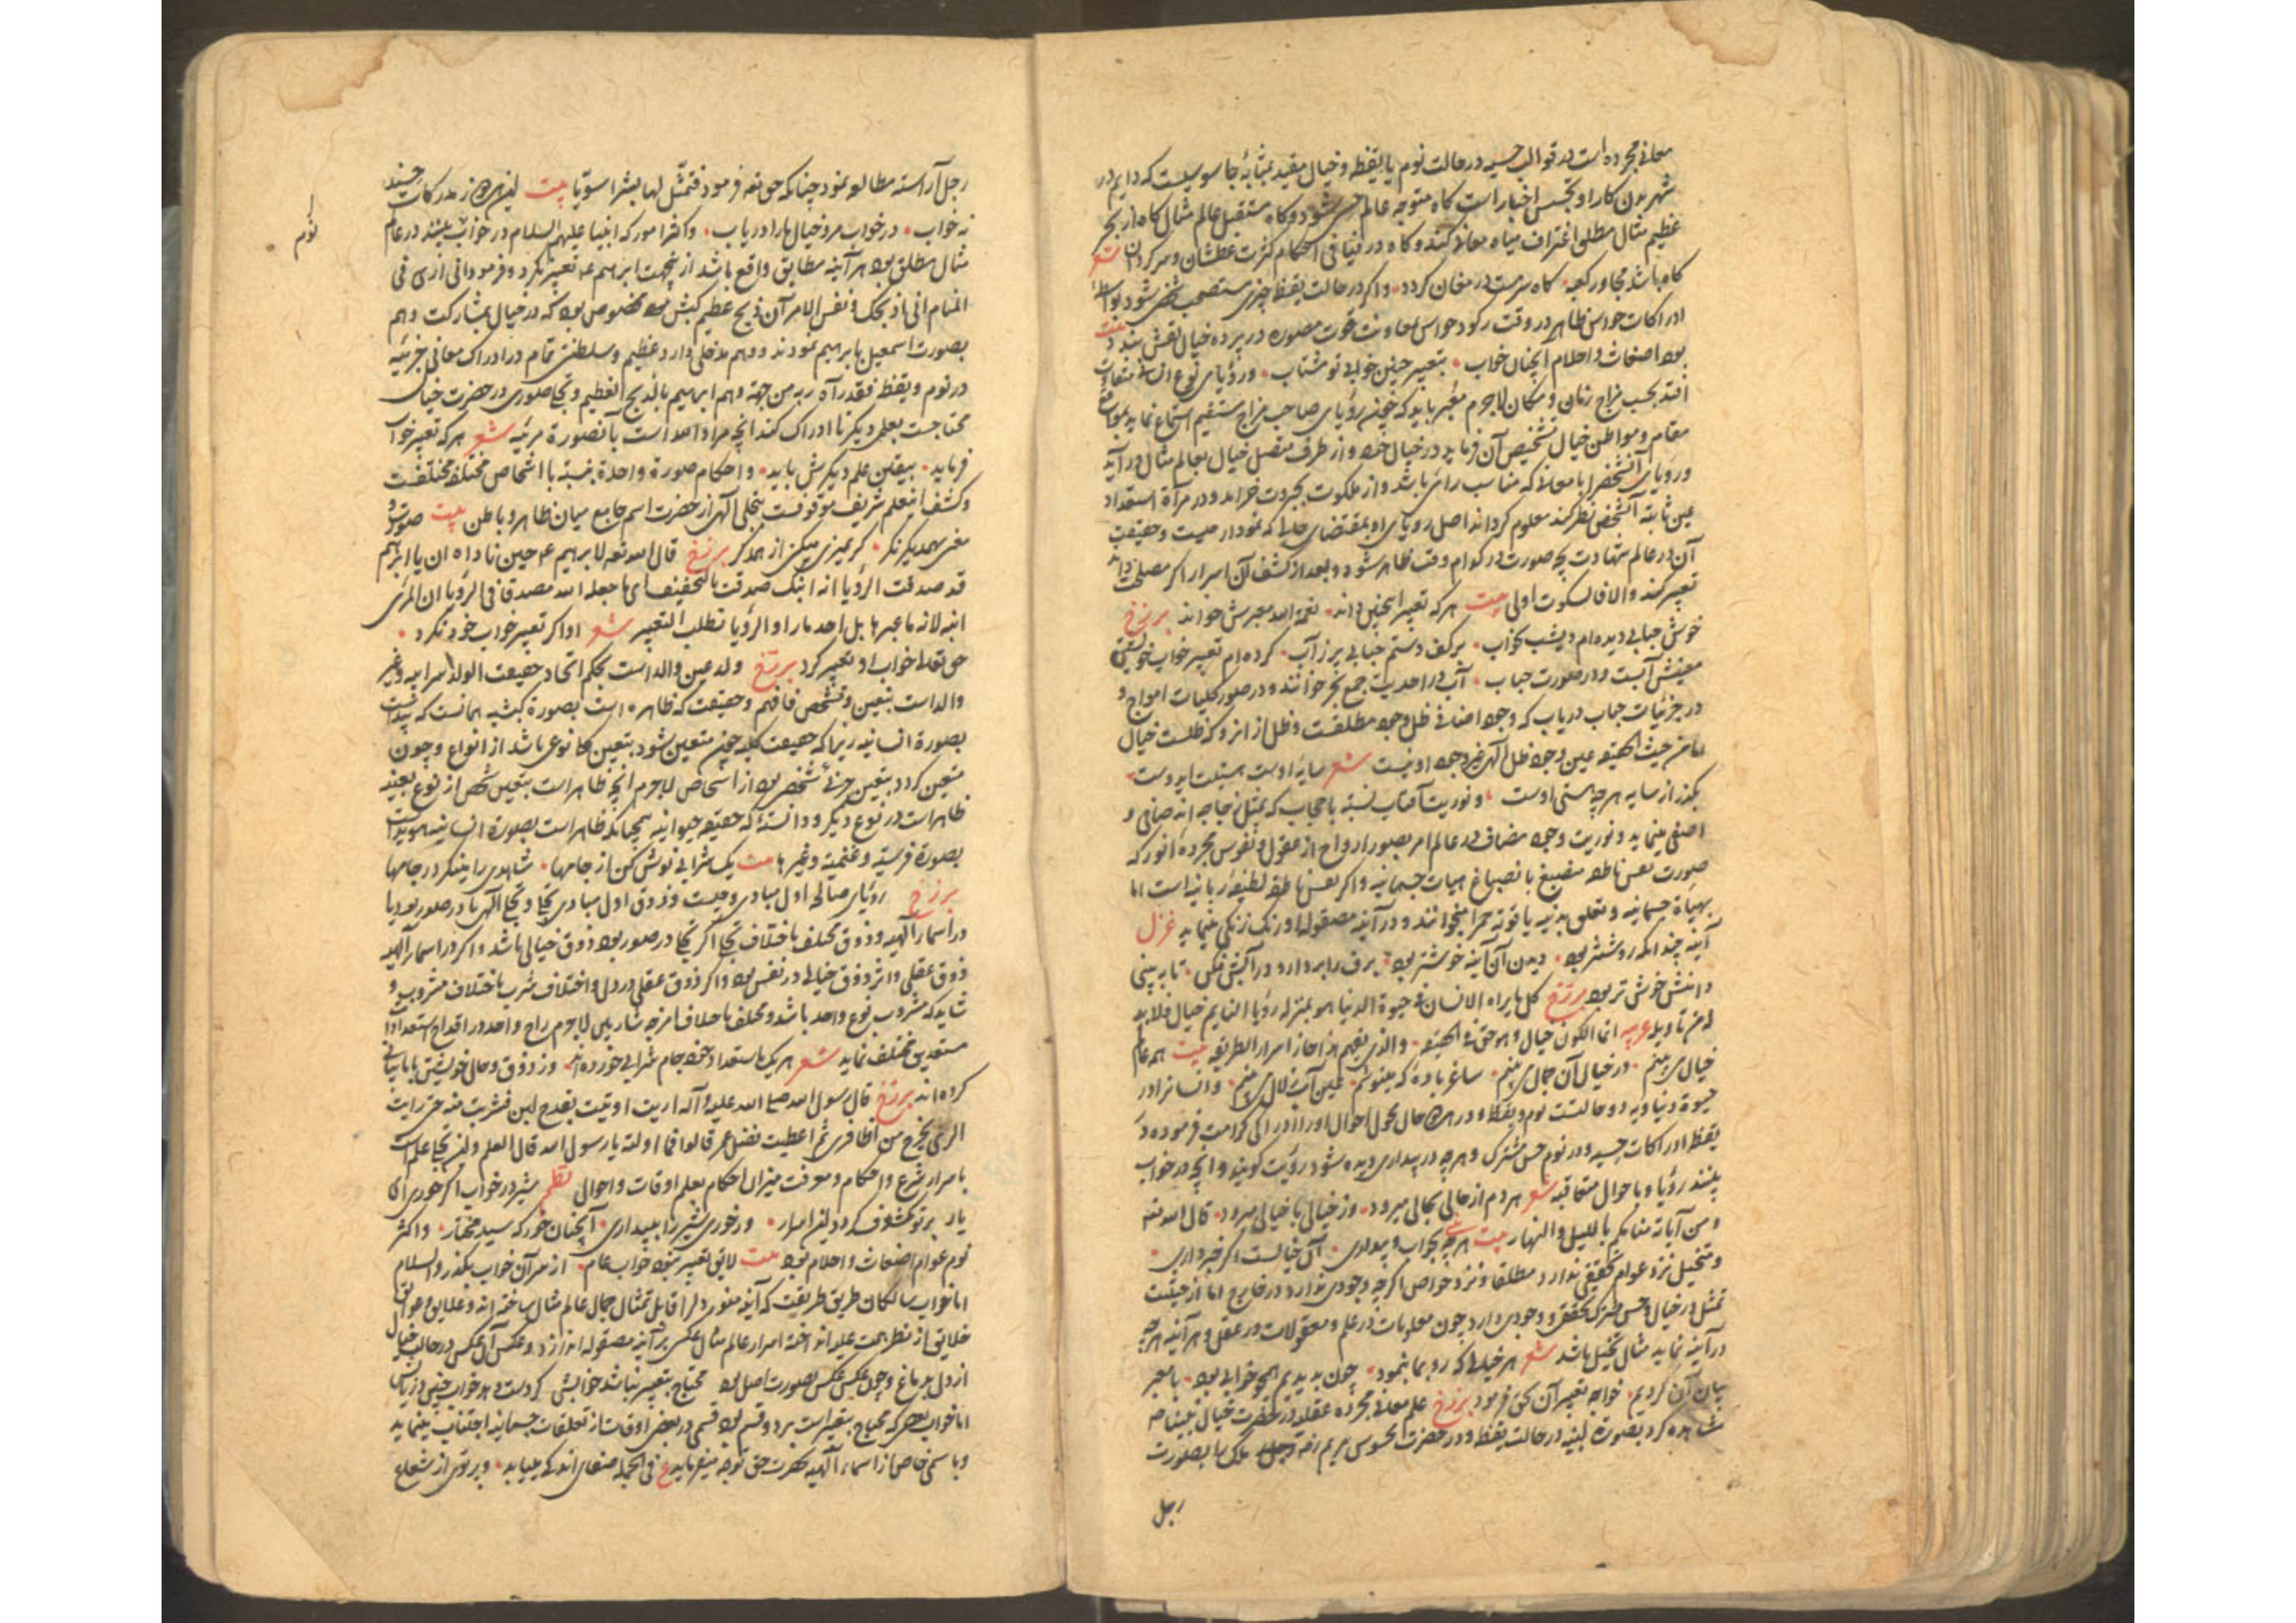 معانی مجرده است در قوالب حسیه در حالت نوم یا یقظه و خیال مقید بمثابهٔ جاسوسیست که دایم در
شهر بدن کار او تجسس اخبار است کاه متوجه عالم حس شود و کاه مستقبل عالم مثال کاه از بحر
عظیم مثال مطلق اغتراف میاه معانی کند و کاه در فیافی احکام کثرت عطشان و سرکردان شعر
کاه باشد مجاور کعبه کاه سرمست در مغان کردد و اکر در حالت یقظه چیزی مستصحب شخص شود بواسطهٔ
ادراکات حواس ظاهر در وقت رکود حواس بمعاونت قوت مصوره در پرده خیال نقش بندد بیت
بود اضغاث و احلام اینچنان خواب بتعبیر چنین خوابی تو مشتاب و رؤیای نوع انسانی متفاوت
افتد بحسب مزاج زمان و مکان لاجرم معبر باید که چون رؤیای صاحب مزاج مستقیم استماع نماید بمواضع
مقام و مواطن خیال تشخیص آن فرماید در خیال خود و از طرف متصل خیال بعالم مثال درآید
و رؤیای آنشخص را با معانی که مناسب رائی باشد و از ملکوت بجبروت خرامد و در مرآة استعداد
عین ثابته آنشخص نظر کند معلوم کرداند اصل رؤیای او بمقتضای حال که نمودار چیست و حقیقت
آن در عالم شهادت بچه صورت در کدام وقت ظاهر شود و بعد از کشف آن اسرار اکر مصلحت داند
تعبیر کند والا فالسکوت اولی بیت هر که تعبیر اینچنین داند نعمة الله معبرش خواند برزخ
خوش حبابی دیده‌ام دیشب بخواب برکف دستم حبابی پر ز آب کرده‌ام تعبیر خواب خویشتن
معینش آبست و در صورت حباب آب در احدیت جمع بحر خوانند و در صور کلیات امواج و
در جزئیات حباب دریاب که وجود اضافی ظل وجود مطلقست و ظل از انرو که ظلست خیال
اما من حیث الحقیقه عین وجود ظل الهی غیر وجود او نیست شعر سایهٔ اوست هستیت ای دوست
بکذر از سایه هرچه هستی اوست و نوریت آفتاب نسبته با حجاب که بمثل زجاجه‌اند صافی و
اصفی مینماید و نوریت وجود مضاف در عالم امر بصور ارواح از عقول و نفوس مجرده انور که
صورت نفس ناطقه منصبغ بانصباغ هیآت جسمانیه و اکر نفس ناطقه لطیفهٔ ربانیه است اما
بهیأة جسمانیه و تعلق بدنیه یاقوته حمرا میخوانند و در آینه مصقوله او زنک زنکی مینماید غزل
آینه چندانکه روشنتر بود دیدن آن آینه خوشتر بود برف را بردار و در آتش فکن تا به بینی
دانشش خوش‌تر بود برزخ کل ما یراه الانسان فی حیوة الدنیا هو بمنزله رؤیا النایم خیال فلا بد
له من تاویله عربیه انما الکون خیال و هو حق فی الحقیقه والذی یفهم هذا حاز اسرار الطریقه بیت همه عالم
خیالی می‌بینم در خیال آن جمال می‌بینم ساغر باده که مینوشم عین آب زلال می‌بینم و انسانرا در
حیوة دنیاویه دو حالتست نوم و یقظه و در هر حال محول احوال او را ادراکی کرامت فرموده در
یقظه ادراکات حسیه و در نوم حس مشترک و هرچه در بیداری دیده شود رؤیت کویند و آنچه در خواب
بینند رؤیا و باحوال متعاقبه شعر هر دم از حالی بحالی میرود وز خیالی با خیالی میرود قال الله تعه
و من آیاته منامکم باللیل و النهار بیت هرچه بینی بخواب و بیداری آن خیالست اکر خبرداری
و متخیل نزد عوام تحققی ندارد مطلقا و نزد خواص اکرچه وجودی ندارد در خارج اما از حیثیت
تمثل در خیال و حس مشترک تحقق و وجودی دارد چون معلومات در علم و معقولات در عقل و هرآینه هرچه
در آینه نماید مثال تخیل باشد شعر هر خیالی که رو بما بنمود چون بدیدیم همچو خوابی بود با معبر
بیان آن کردیم خواجه تعبیر آن بحق فرمود برزخ علم معانی مجرده عقلیه در حضرت خیال نبینا صه
مشاهده کرد بصورة لبنیه در حالت یقظه و در حضرت المحسوس مریم رضه ملک را بصورت
رجل
رجل آراسته مطالعه نمود چنانکه حق تعه فرمود فتمثل لها بشرا سویا بیت این هر دو ز مدرکات حسند
نه خواب در خواب مرو خیال ها را دریاب و اکثر امور که انبیا علیهم السلام در خواب بینند در عالم
نوم
مثال مطلق بود هرآینه مطابق واقع باشد از ینجهت ابرهیم عه تعبیر نکرد و فرمود انی اری فی
المنام انی اذبحک و فی نفس الامر آن ذبح عظیم کبش مخصوص بود که در خیال بمشارکت وهم
بصورت اسمعیل بابرهیم نمودند و وهم مدخلی دارد عظیم و سلطنتی تمام در ادراک معانی جزئیه
در نوم و یقظه فقد رآه ربه من جهة وهم ابرهیم بالذبح العظیم و تجلی صوری در حضرت خیال
محتاجست بعلمی دیکر تا ادراک کند آنچه مراد الله است بآنصورة مرئیه شعر هر که تعبیر خواب
فرماید بیقین علم دیکرش باید و احکام صورة واحدة نسبة با اشخاص مختلفه مختلفست
و کشف اینعلم شریف موقوفست بتجلی الهی از حضرت اسم جامع میان ظاهر و باطن بیت صورت و
معنی بهمدیکر نکر کر تمیزی میکنی از همدکر برزخ قال الله تعه لابرهیم عه حین ناداه ان یا ابرهیم
قد صدقت الرؤیا انه ما قال صدقت بالتخفیف ای ما جعله الله مصدقا فی الرؤیا ان المرئی
ابنه لانه ما عبرها بل اخذ ما راه و الرؤیا تطلب التعبیر شعر او اکر تعبیر خواب خود نکرد
حق تعالی خواب او تعبیر کرد برزخ ولد عین والد است بحکم اتحاد حقیقت الولد سر ابیه و غیر
والد است بتعین و تشخص فافهم و حقیقت که ظاهره است بصورة کبشیه همانست که پیداست
بصورة انسانیه زیرا که حقیقت کلیه چون متعین شود بتعین کلی نوعی باشد از انواع و چون
متعین کردد بتعین جزئی شخصی بود از اشخاص لاجرم آنچه ظاهر است بتعین شخص از نوع بعینه
ظاهر است در نوع دیکر و دانستهٔ که حقیقه حیوانیه همچنانکه ظاهر است بصورة انسانیه هویداست
بصورة فرسیة و غنمیة و غیرها بیت یک شرابی نوش کن از جامها شاهدی را مینکر در جامها
برزخ رؤیای صالحه اول مبادی وحیست و ذوق اول مبادی تجلی و تجلی الهی یا در صور بود یا
در اسماء الهیه و ذوق مختلف باختلاف تجلی اکر تجلی در صور بود ذوق خیالی باشد و اکر در اسماء الهیه
ذوق عقلی و اثر ذوق خیالی در نفس بود و اثر ذوق عقلی در دل و اختلاف شرب باختلاف مشروب و
شاید که مشروب نوع واحد باشد و مختلف باختلاف امزجه شاربین لاجرم راح واحد در اقداح استعدادات
مستعدین مختلف نماید شعر هر یک باستعداد خود جام شرابی خورده‌اند وز ذوق و حال خویشتن با ما بیانی
کرده‌اند برزخ قال رسول الله صلی الله علیه و آله اریت اوتیت بقدح لبن فشربت منه حتی رایت
الری یخرج من اظافری ثم اعطیت فضلی عمر قالوا فما اولته یا رسول الله قال العلم و این تجلی علمست
باسرار شرع و احکام و معرفت میزان احکام بعلم اوقات و احوال نظم شیر در خواب اکر خوری ای
یار برتو مکشوف کردد این اسرار ور خوری شیر را ببیداری آنچنان خور که سید مختار و اکثر
نوم عوام اضغاث و احلام بود بیت لایق تعبیر نبود خواب عام از سر آن خواب بکذر والسلام
اما خواب سالکان طریق طریقت که آینه منور دل را قابل تمثال جمال عالم مثال ساخته‌اند و علایق و عوایق
خلایق از نظر همت علیه انداخته اسرار عالم مثال عکس بر آینه مصقوله اندازد و عکس آن عکس در جالب خیال
از دل بدماغ و چون عکس عکس بصورت اصل بود محتاج بتعبیر نباشد خوابش کر دست دهد خواب چنین در یابش
اما خواب بعضی که محتاج بتعبیر است بر دو قسم بود قسمی در بعضی اوقات از تعلقات جسمانیه اجتناب مینماید
و با سمی خاص از اسماء الهیه بحضرت حق توجه میفرماید ع فی الجمله صفای اندکی مییابد و پرتوی از شعاع